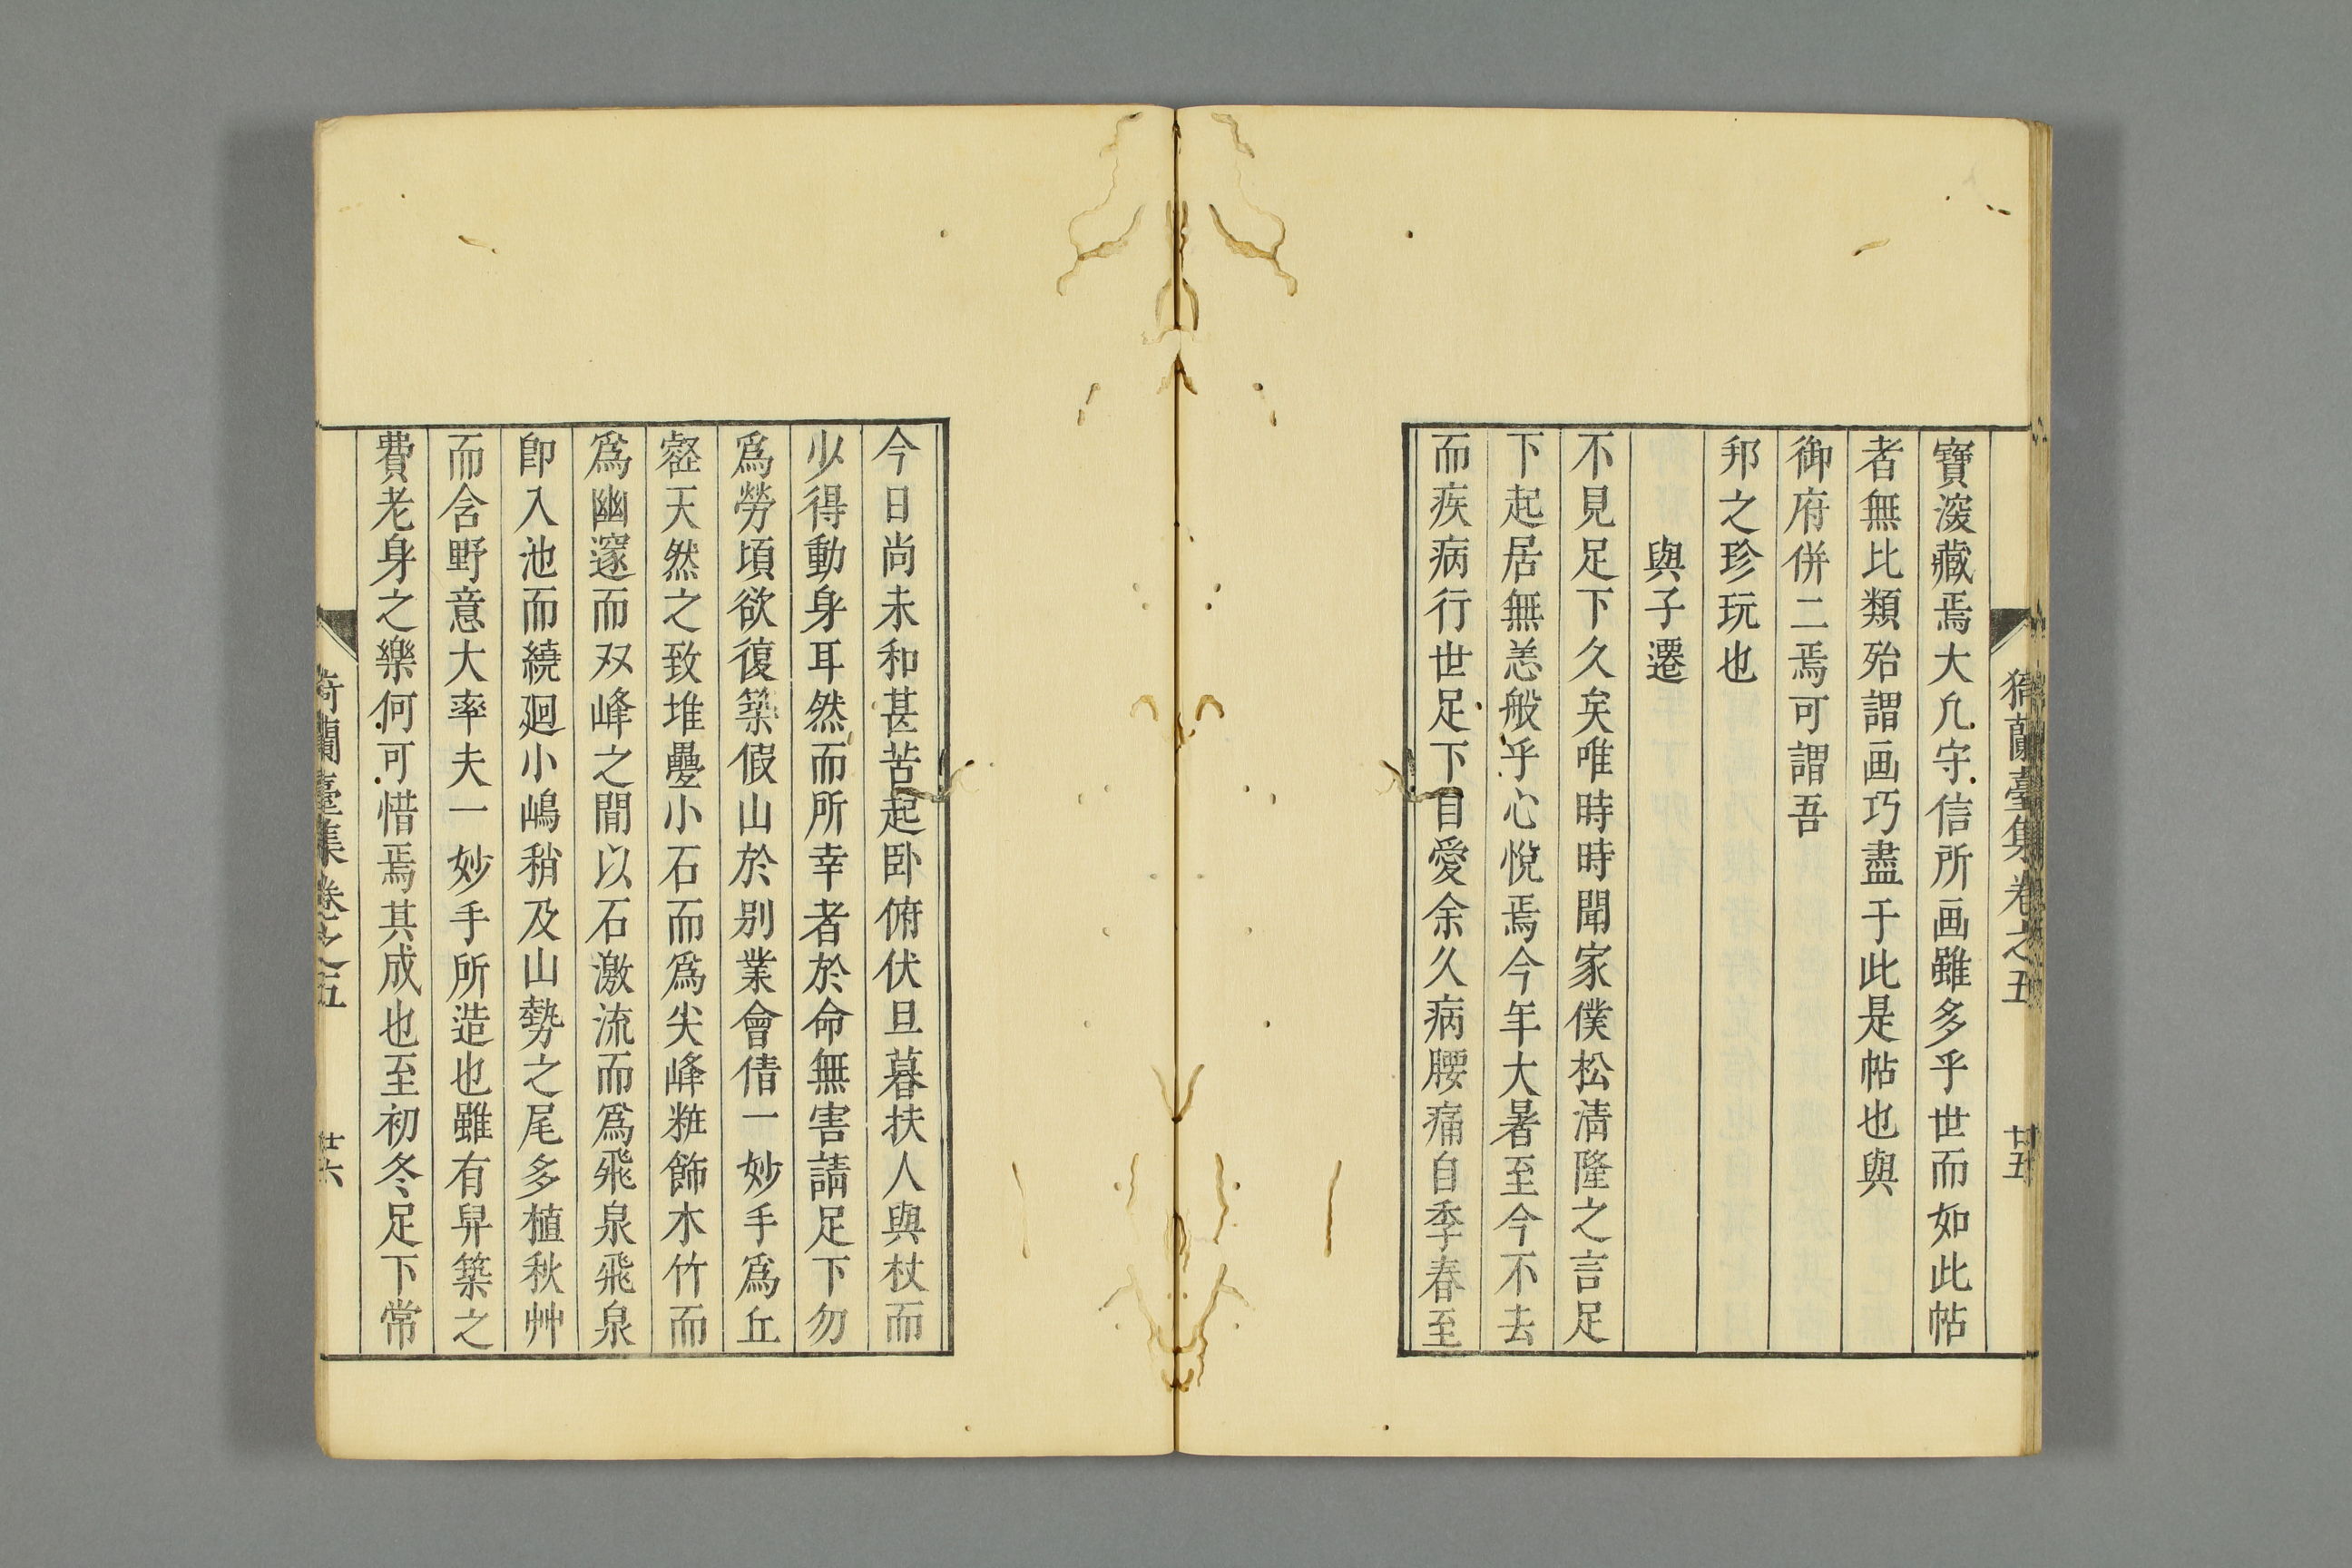 猗蘭臺集卷之五 廿五
寶深藏焉大凢守信所画雖多乎世而如此帖
者無比類殆謂画巧盡于此是帖也與
御府併二焉可謂吾
邦之珍玩也
與子遷
不見足下久矣唯時時聞家僕松淸隆之言足
下起居無恙般乎心悅焉今年大暑至今不去
而疾病行世足下自愛余久病腰痛自季春至
今日尚未和甚苦起卧俯伏旦暮扶人與杖而
少得動身耳然而所幸者於命無害請足下勿
爲勞頃欲復築假山於別業會倩一妙手爲丘
壑天然之致堆疊小石而爲尖峰粧飾木竹而
爲幽邃而双峰之間以石激流而爲飛泉飛泉
卽入池而繞廻小嶋稍及山勢之尾多植秋艸
而含野意大率夫一妙手所造也雖有舁築之
費老身之樂何可惜焉其成也至初冬足下常
猗蘭臺集卷之五 廿六